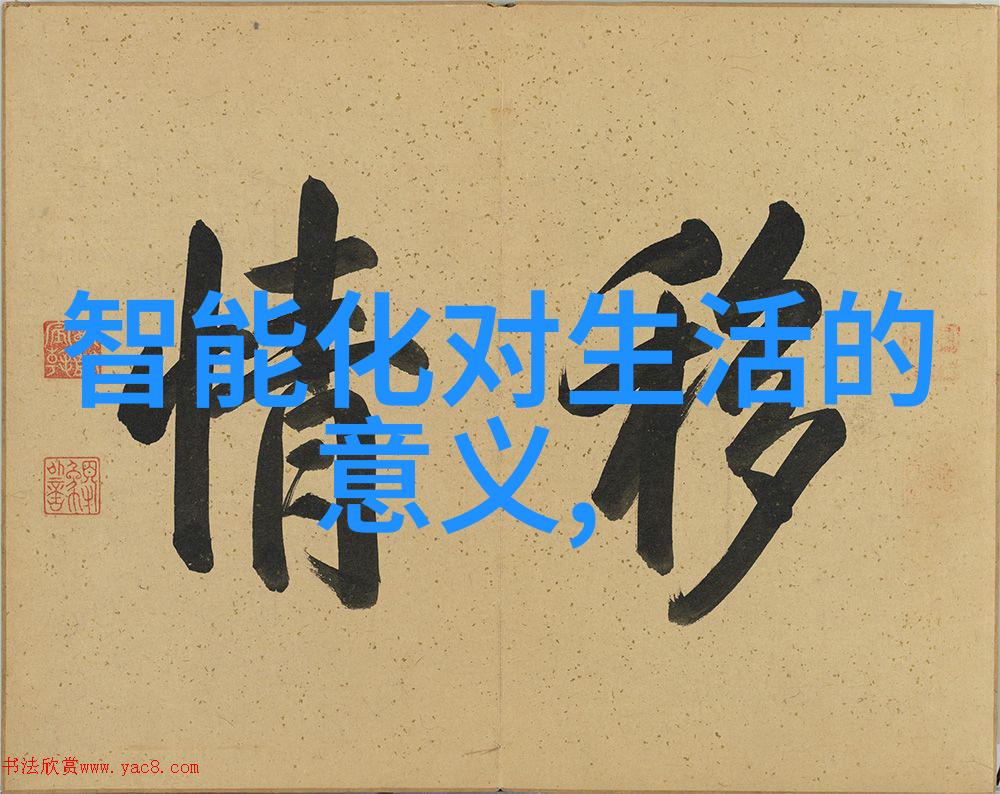 移情
智能化对生活的
意义,
书法欣赏www.yac8.com